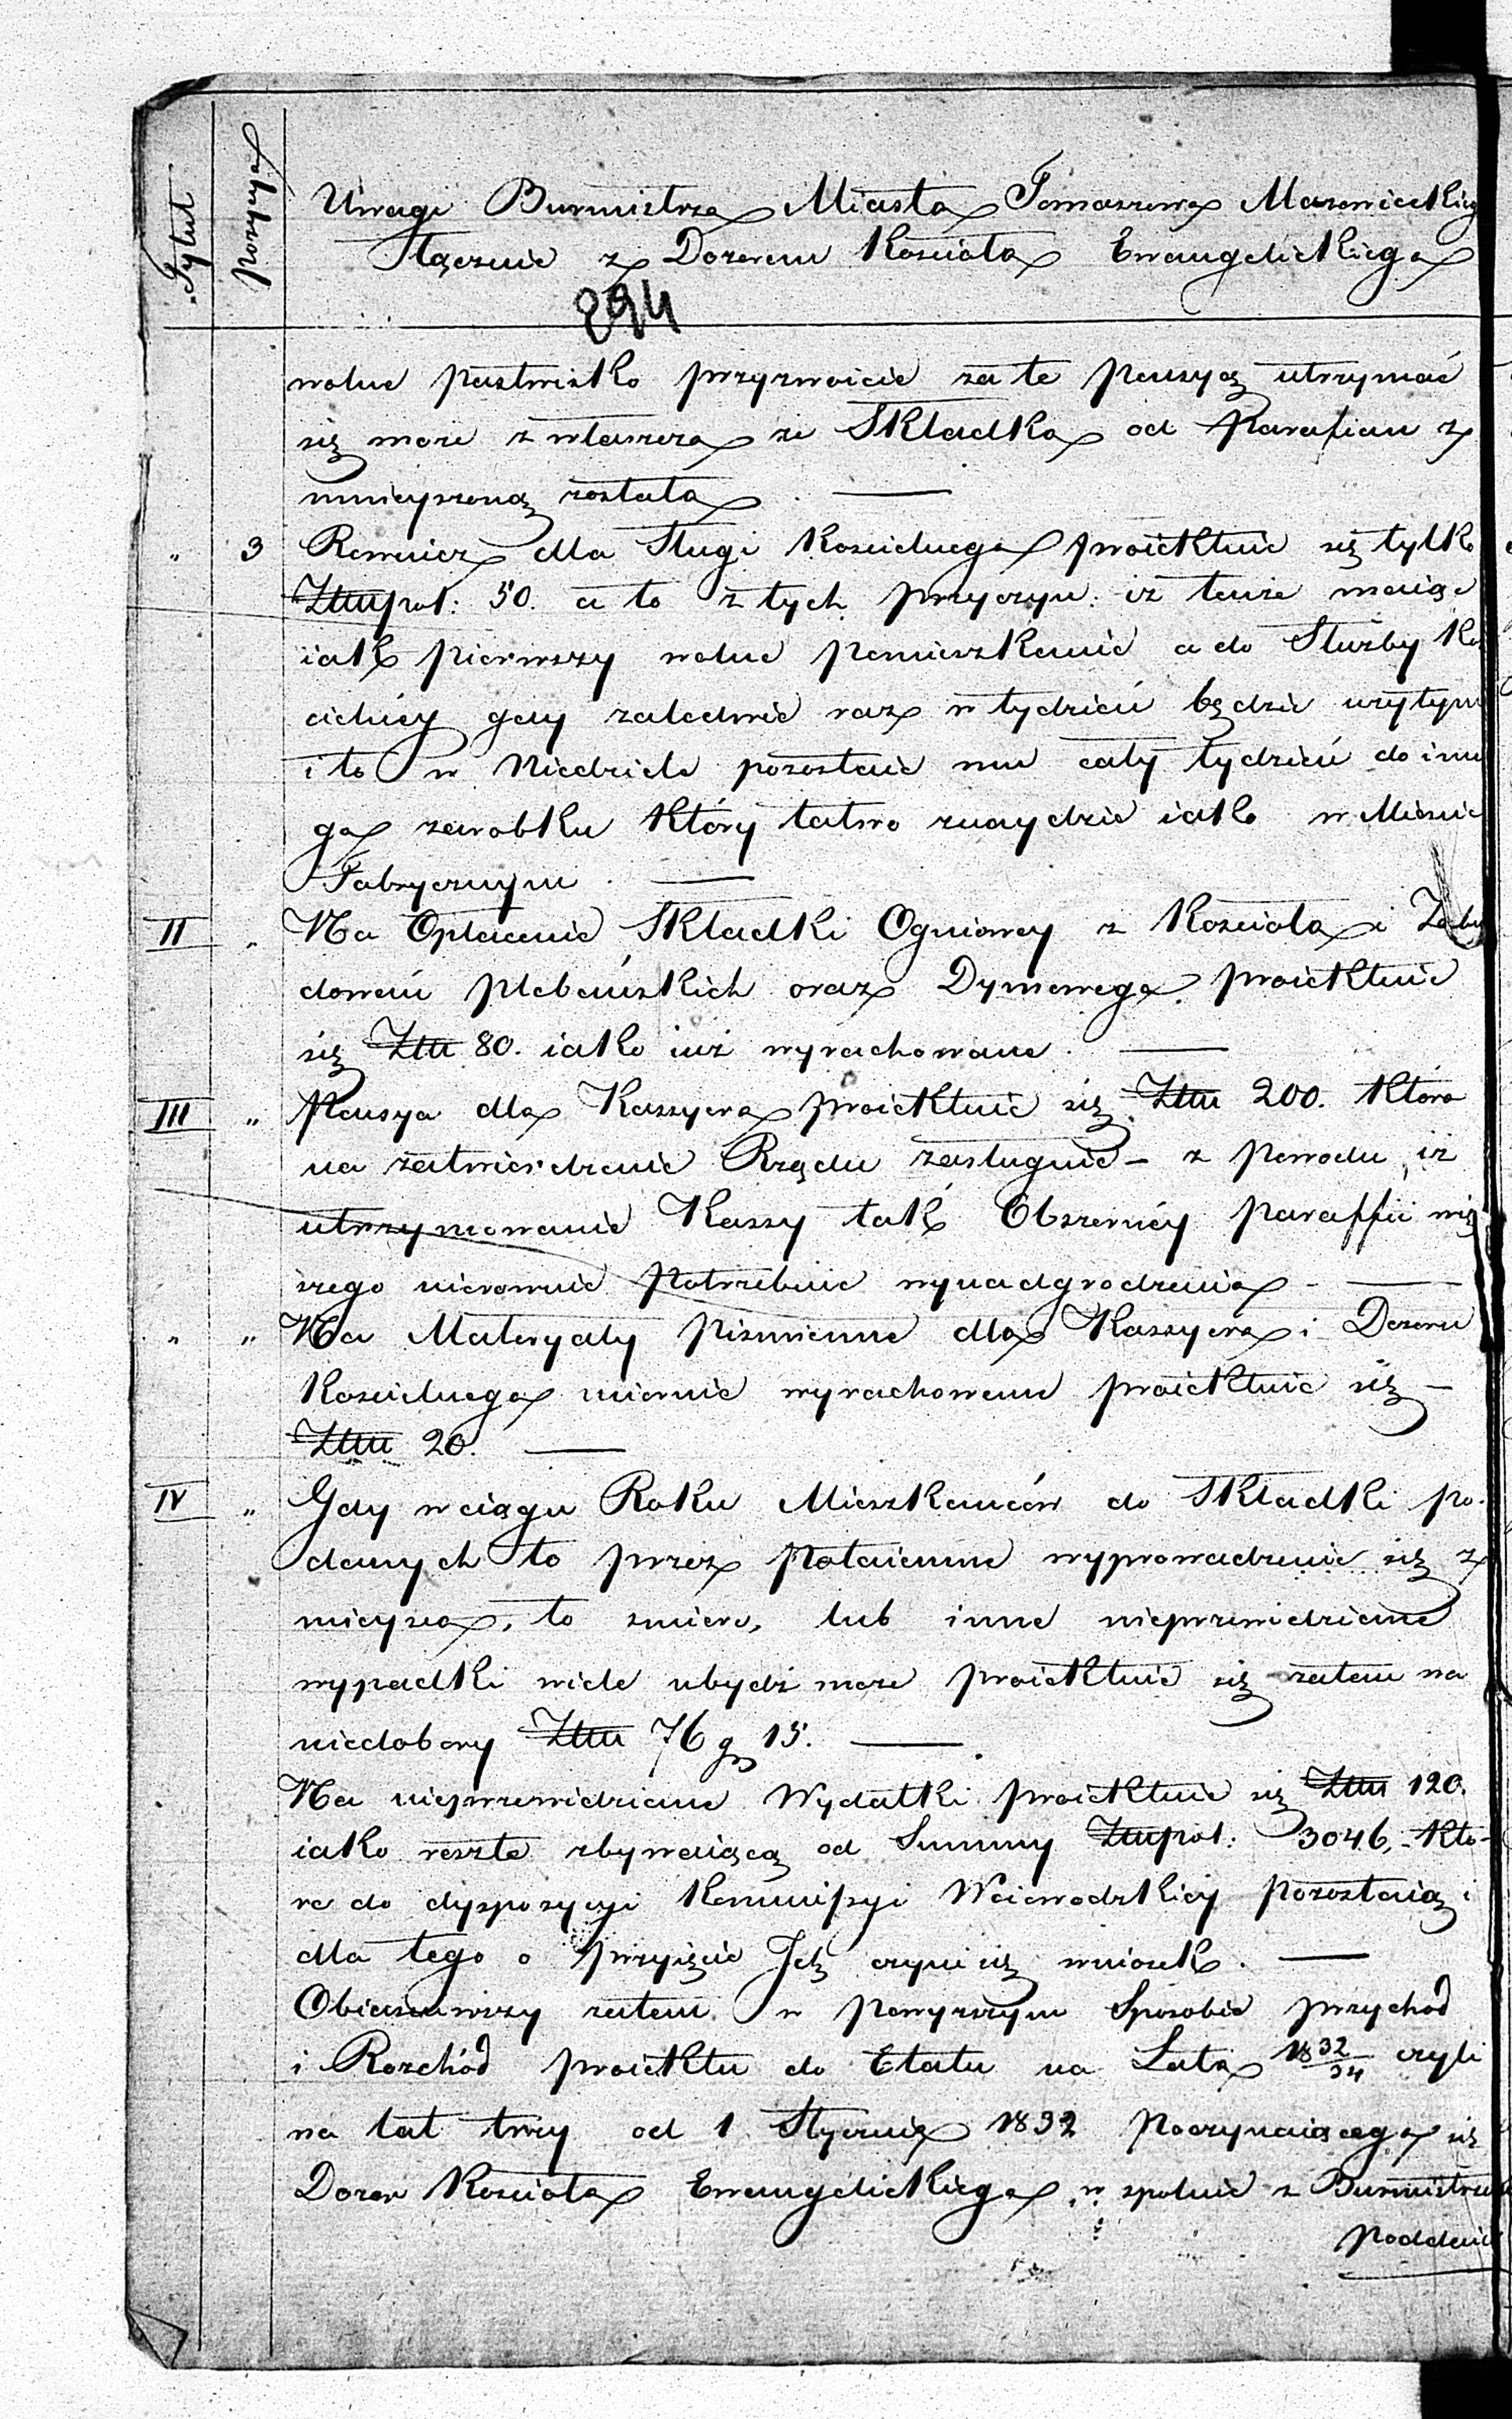 Tytuł
Pozycya
Uwagi Burmistrza Miasta Tomaszowa Mazowieckieg
łącznie z Dozorem Kościoła Ewangelickiego
294
wolne pastwisko przyzwoicie za te pensyą utrzymać
się może zwłaszcza że Składka od Parafian z
mnieyszoną została. —
" 3 Rownież dla Sługi Koscielnego proiektuie się tylko
Złłpol: 50. a to z tych przyczyn: iż tenże maiąc
iak pierwszy wolne pomieszkanie a do Służby Ko
ścielnéy gdy zaledwie raz w tydzień będzie użytym
i to w Niedziele pozostaie mu cały tydzień do inne
go zarobku który łatwo znaydzie iako w Mieście
Fabrycznym. —
II " Na Opłacenie Składki Ogniowey z Kościoła i Zabu
dowań plebańskich oraz Dymowego proiektuie
się Złłł 80. iako iuż wyrachowane. —
III " Pensya dla Kassyera proiektuie się Złłł 200. która
na zatwierdzenie Rządu zasługuie – z powodu iż
utrzymowanie Kassy tak Obszernéy paraffii wię
szego nierownie potrzebuie wynadgrodzenia – —
" " Na Materyały piśmienne dla Kassyera i Dozoru
Koscielnego miernie wyrachowane proiektuie się –
Złłł 20. —
IV " Gdy w ciągu Roku Mieszkańców do Składki po-
danych to przez potaiemne wyprowadzenie się z
mieysca, to smierć, lub inne nieprzewidziane
wypadki wiele ubydź może proiektuie się zatem na
niedobory Złłł 76 gr 15. —
Na nieprzewidziane Wydatki proiektuie się Złłł 120.
iako resztę zbywaiącą od Summy Złłpol: 3046, – któ-
re do dyspozycyi Kommissyi Woiewodzkiéy pozostaią i
dla tego o przyięcie Jch czyni się wniosek. —
Obiaśniwszy zatem w powyższym Sposobie przychód
i Rozchód proiektu do Etatu na Lata 1832/34 czyli
na lat trzy od 1 Stycznia 1832 poczynaiącego się
Dozor Kościoła Ewangelickiego w spolnie z Burmistrzem
poddaie